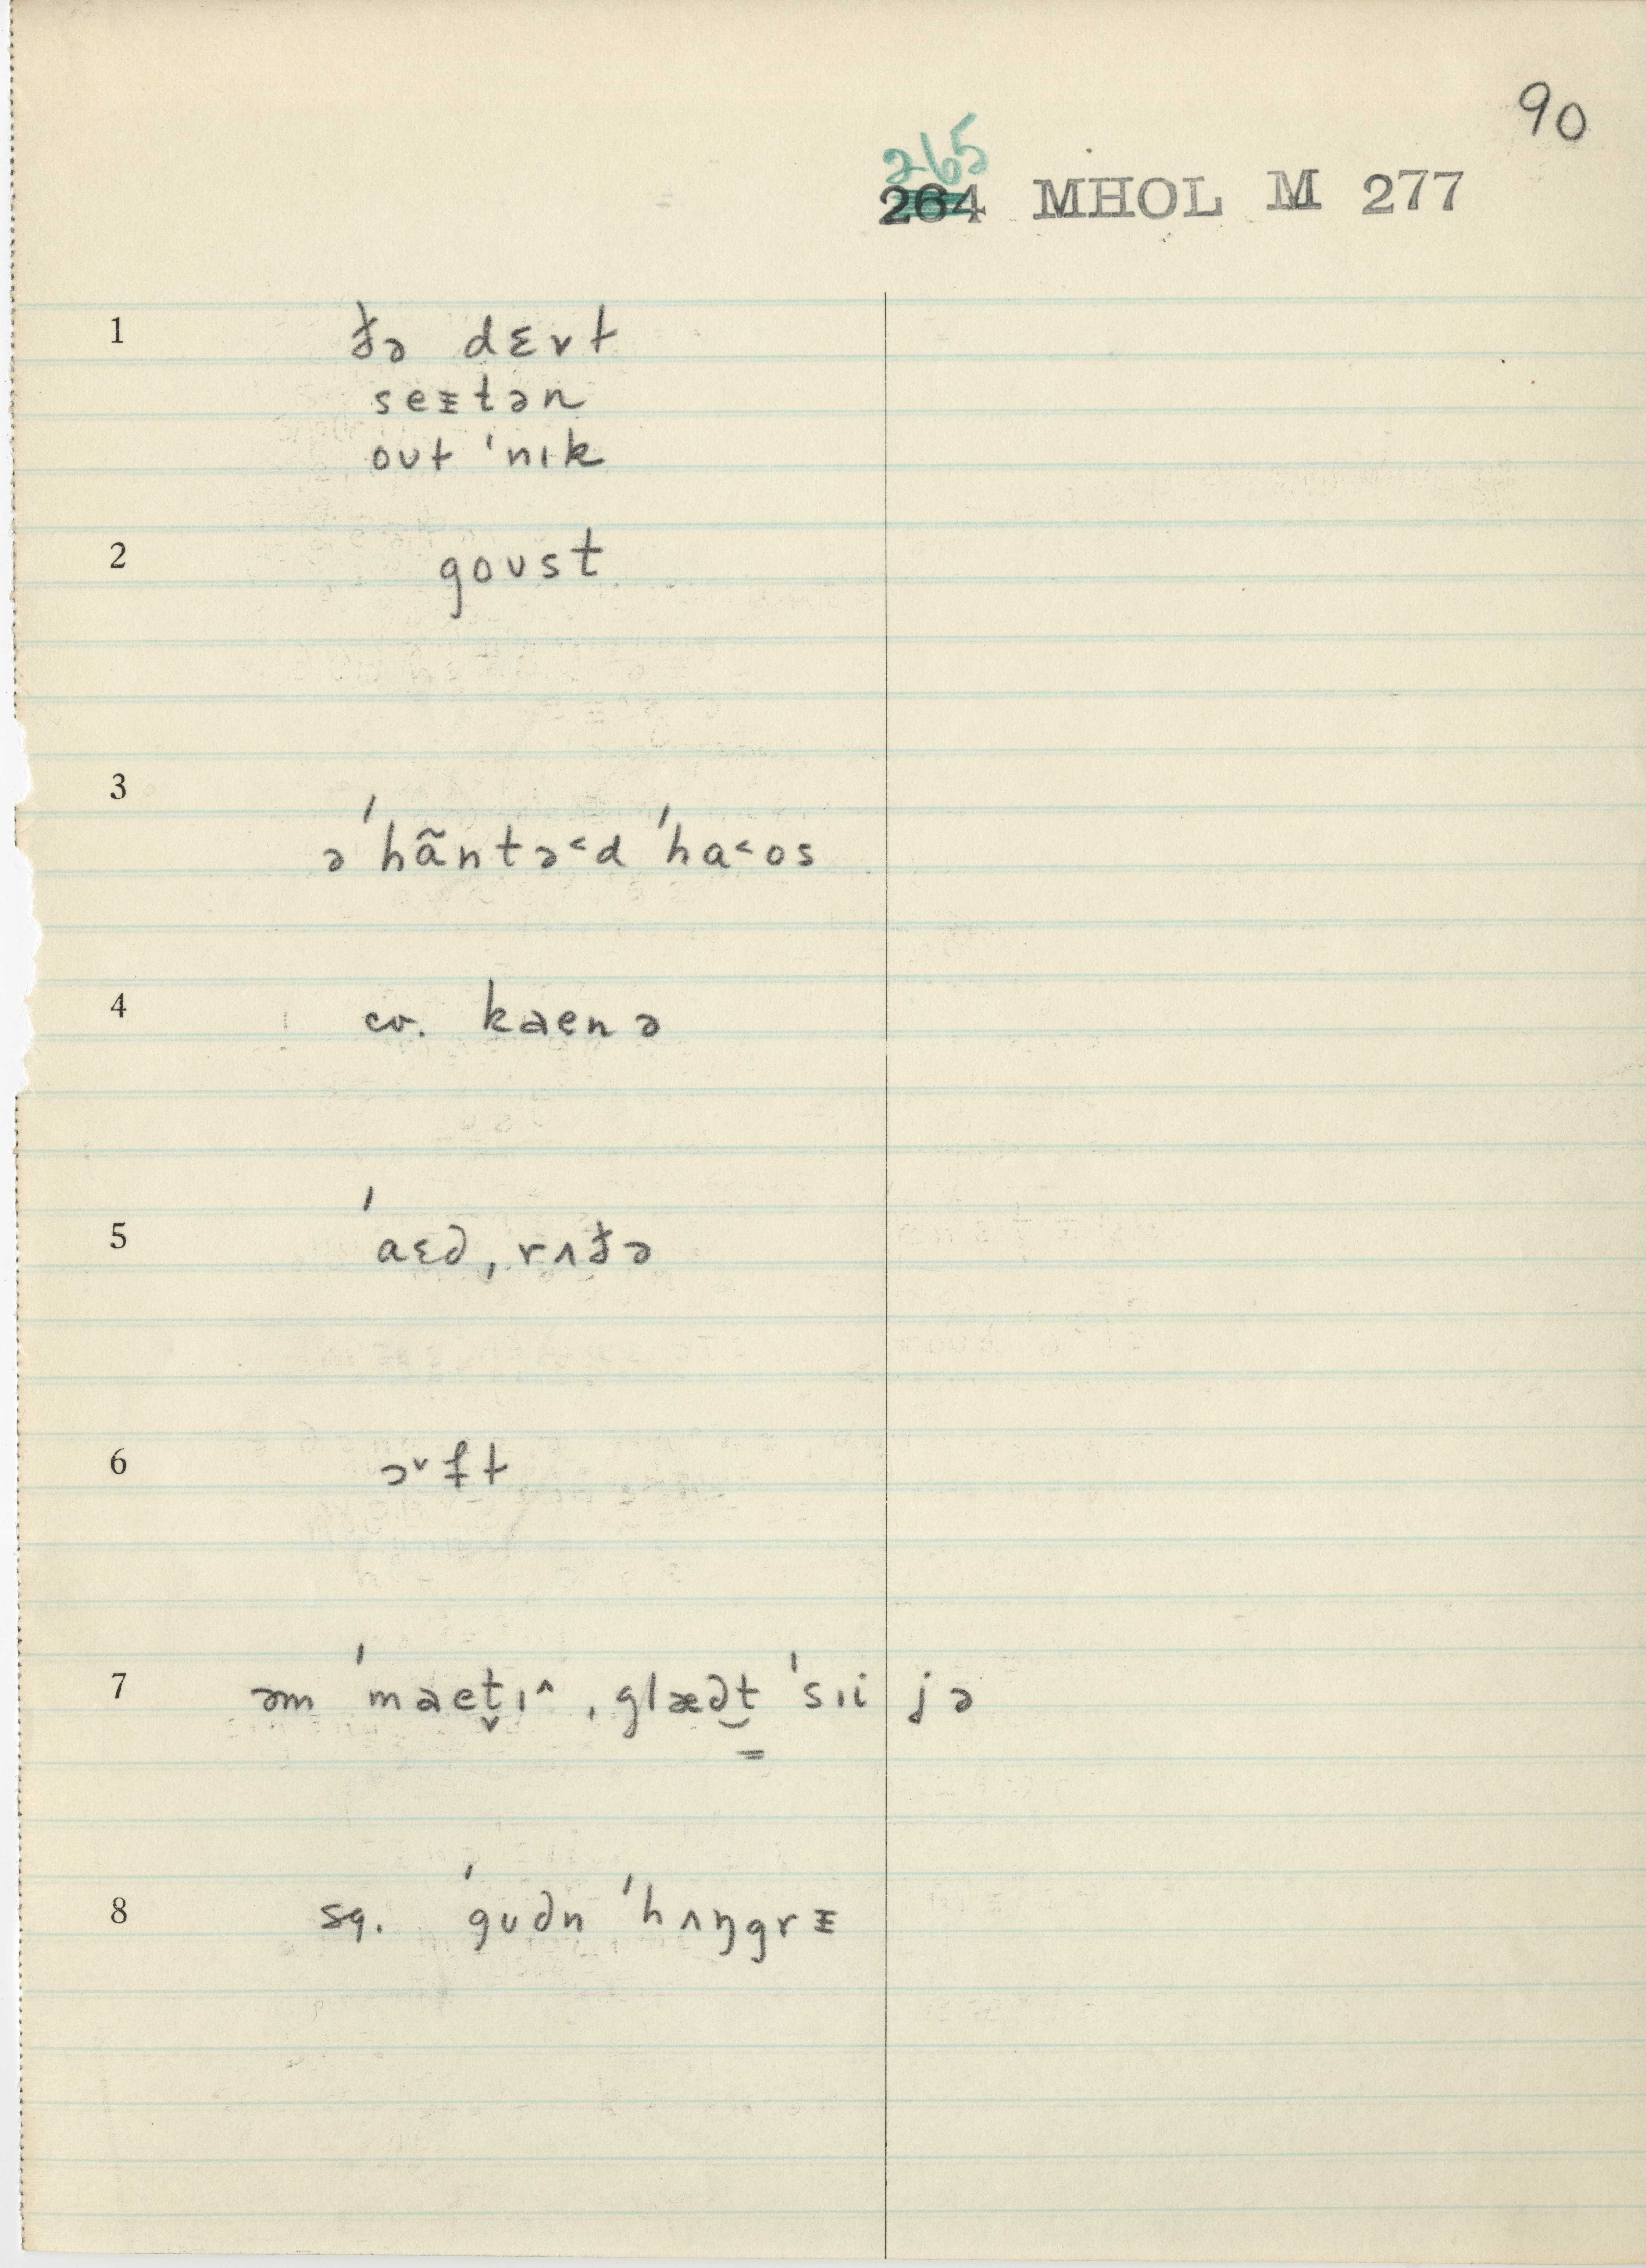 90
265
264 MHOL M 277
1 ðə dɛvɫ
seɪtən
oʊɫ ˈnɪk
2 goʊst
3 ə ˈhãntə˂d ˈha˂os
4 cv. kaenə
5 ˈaɛ∂, rʌðə
6 ə˅ft
7 əm ˈmaet̬ɪ˄, glæ∂t̳ ˈsɪi jə
8 sq. ˈgʊ∂n ˈhʌŋgrɪ